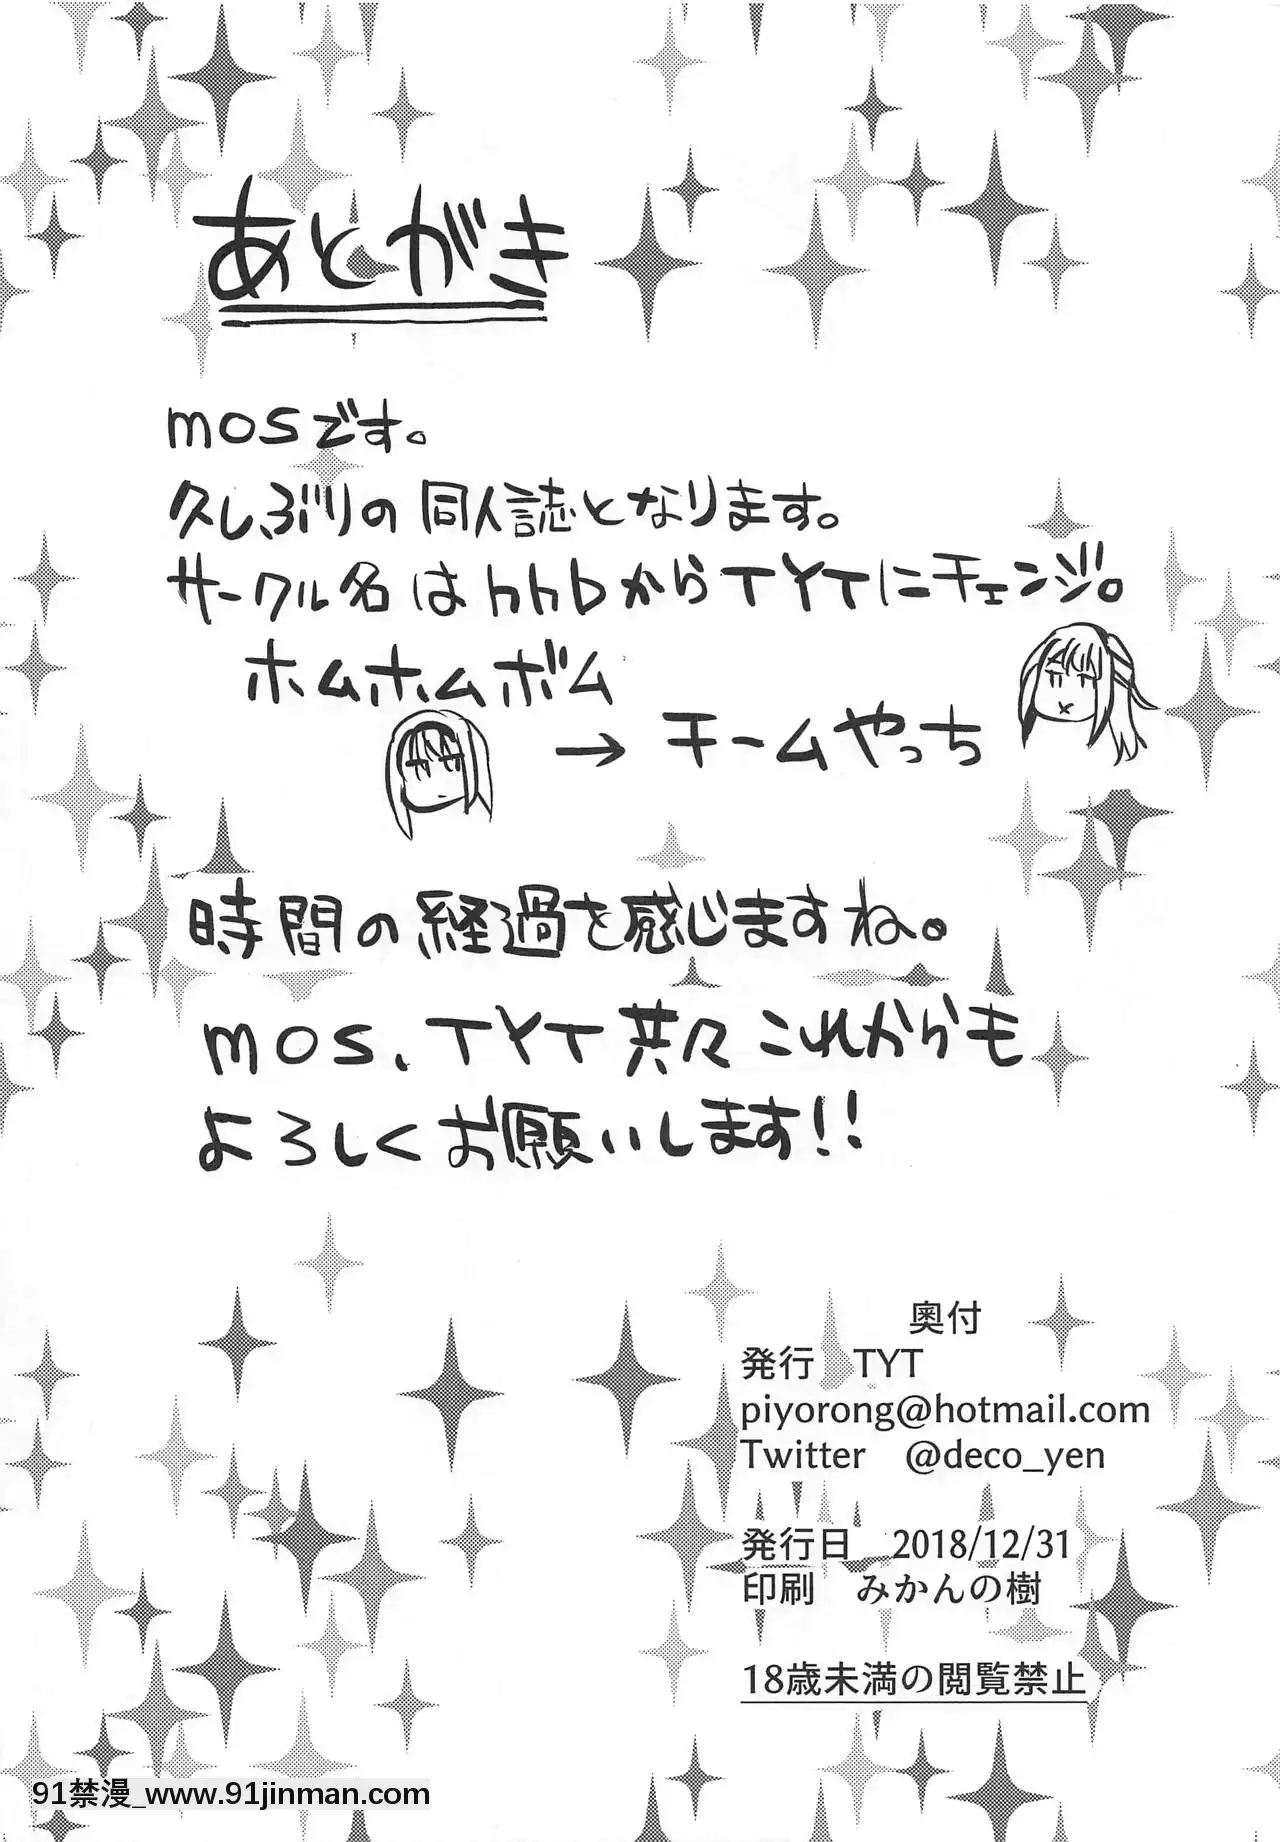 あとがき
mosです。
久しぶりの同人誌となります。
サークル名はhhbからTYTにチェンジ。
ホムホムボム
→ チームやっち
時間の経過を感じますね。
mos、TYT共々これからも
よろしくお願いします!!
奥付
発行 TYT
piyorong@hotmail.com
Twitter @deco_yen
発行日 2018/12/31
印刷 みかんの樹
18歳未満の閲覧禁止
91禁漫_www.91jinman.com